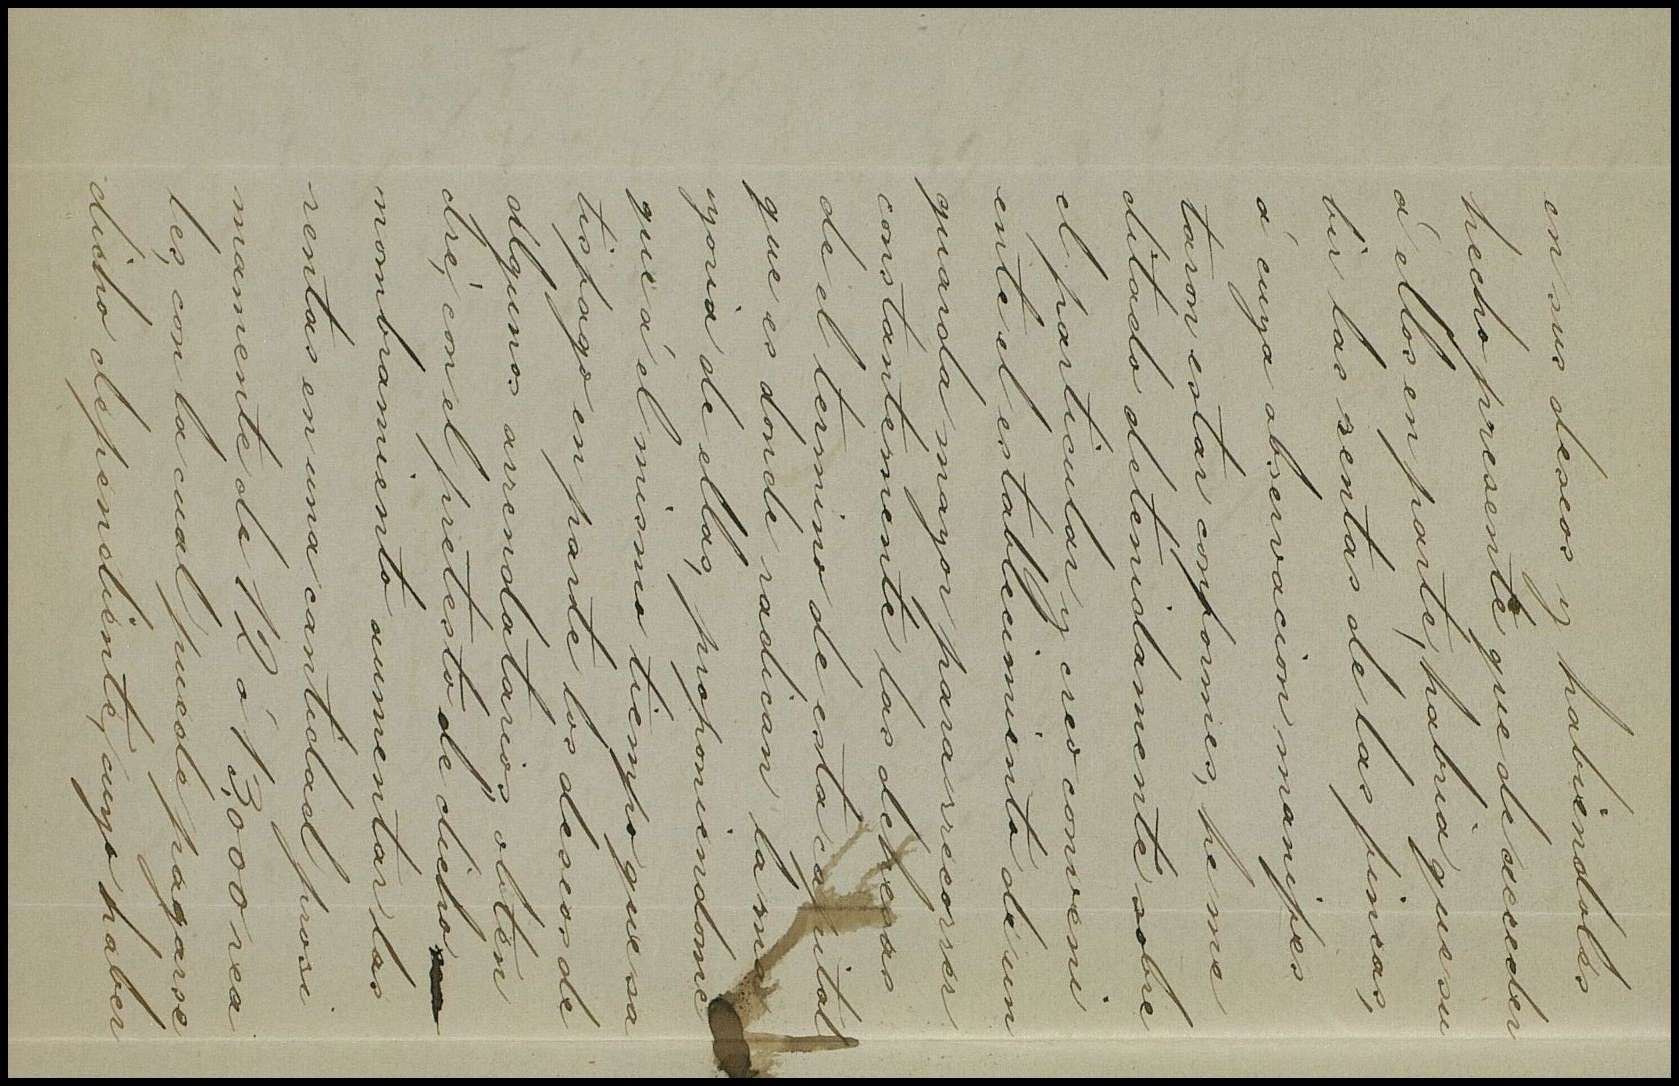 en sus deseos y habiendoles
hecho presente que de acceder
á ellos en parte, habria que su
bir las rentas de las fincas,
á cuya observacion manifes
taron estar conformes, he me
ditado detenidamente sobre
el particular y creo conveni
ente el establecimiento de un
guarda mayor para recorrer
constantemente las dehesas
de el termino de esta capital
que es donde radican la ma
yoria de ellas, proponiendome
que á él mismo tiempo que sa
tisfago en parte los deseos de
algunos arrendatarios, obten
dré, con el pretesto de dicho
nombramiento aumentar las
rentas en una cantidad prosi
mamente de 12 ó 13,000 rea
les, con la cual puede pagarse
dicho dependiente, cuyo haber